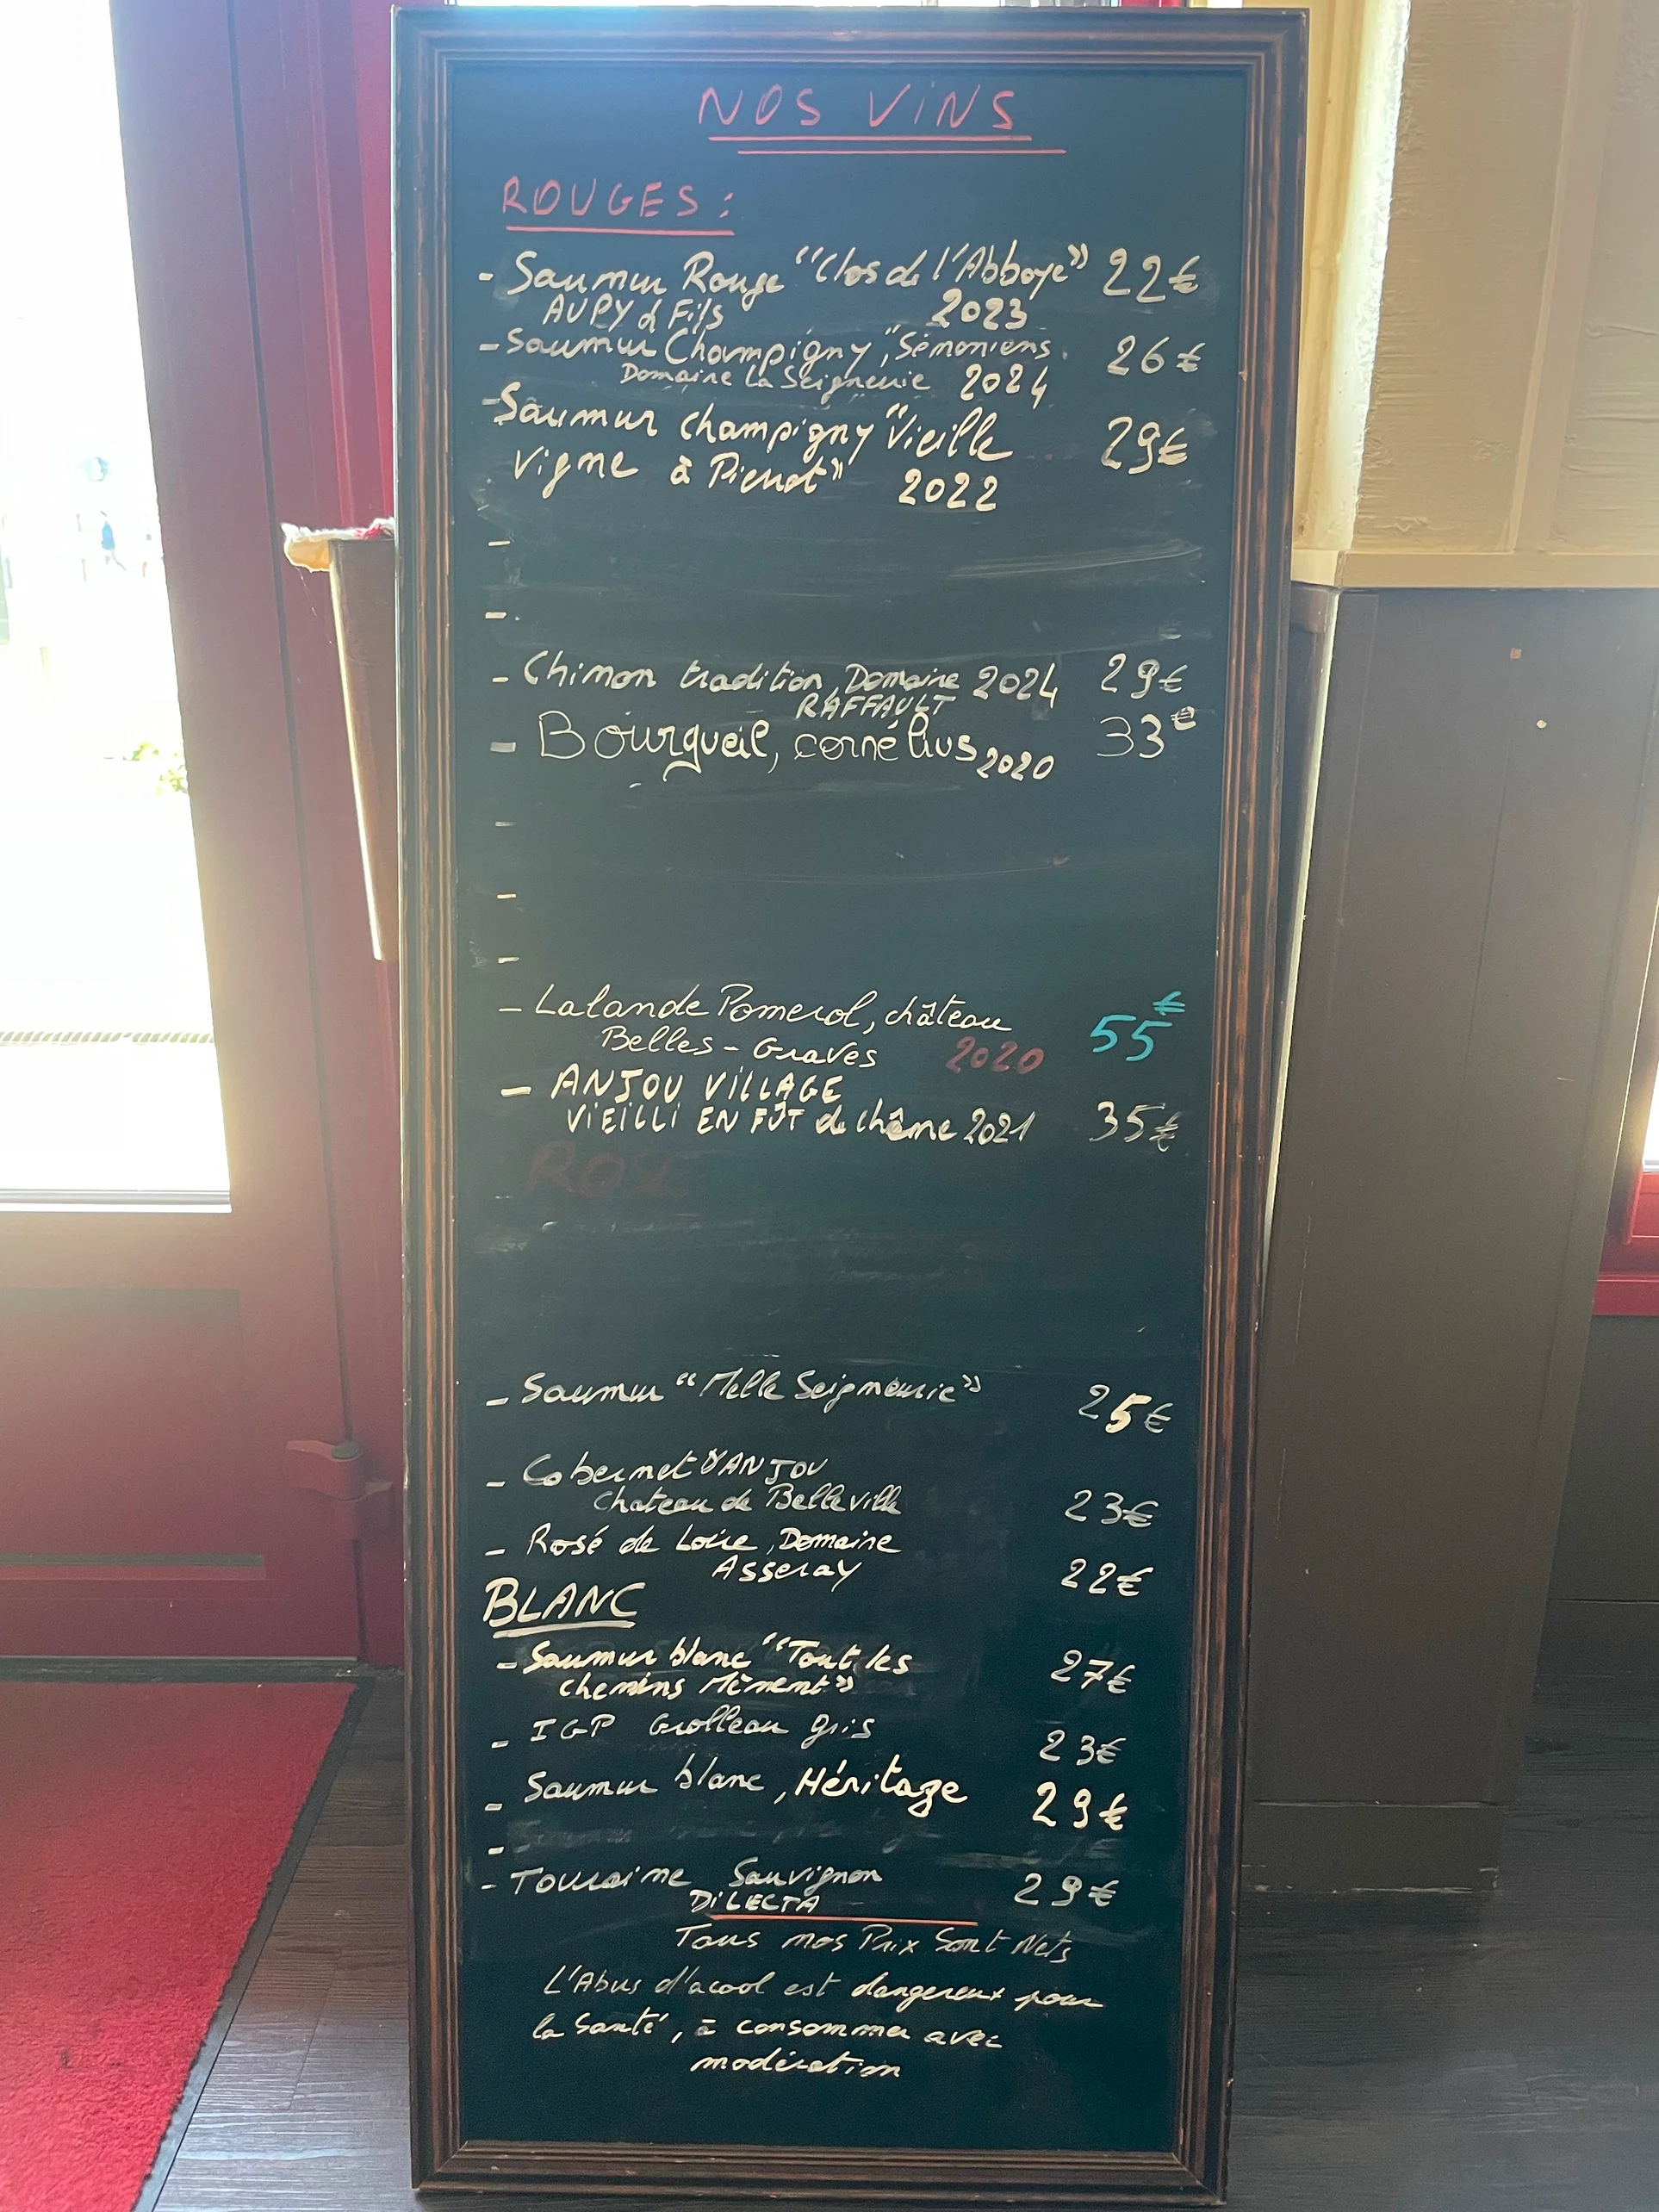 NOS ViNS
ROUGES :
- Saumur Rouge "Clos de l'Abbaye" 22€
AUPY & Fils 2023
- Saumur Champigny, "Sémoniens 26€
Domaine La Seigneurie 2024
- Saumur champigny "Vieille 29€
Vigne à Pierrot" 2022
-
-
- Chinon tradition, Domaine 2024 29€
RAFFAULT
- Bourgueil, cornélius 2020 33€
-
-
-
- Lalande Pomerol, château 55€
Belles-Graves 2020
- ANJOU ViLLAGE
ViEiLLi EN FÛT de chêne 2021 35€
ROSE
- Saumur "Melle Seigneurie" 25€
- Cabernet d'ANJOU
Chateau de Belleville 23€
- Rosé de Loire, Domaine
Asseray 22€
BLANC
- Saumur blanc "Tout les 27€
chemins Mènent"
- IGP Grolleau gris 23€
- Saumur blanc, Héritage 29€
-
- Touraine Sauvignon 29€
DiLECTA
Tous nos Prix Sont Nets
L'Abus d'acool est dangereux pour
la Santé, à consommer avec
modération